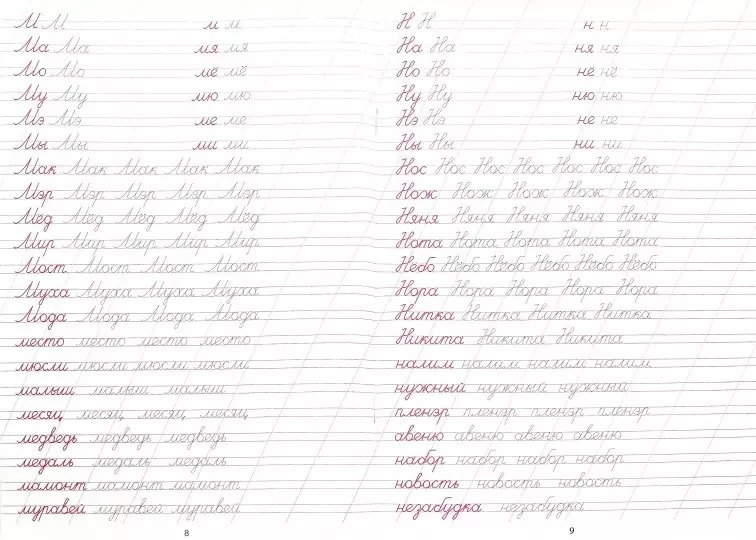 М М м м
Ма Ма мя мя
Мо Мо мё мё
Му Му мю мю
Мэ Мэ ме ме
Мы Мы ми ми
Мак Мак Мак Мак Мак
Мэр Мэр Мэр Мэр Мэр
Мёд Мёд Мёд Мёд Мёд
Мир Мир Мир Мир Мир
Мост Мост Мост Мост
Муха Муха Муха Муха
Мода Мода Мода Мода
место место место место
мюсли мюсли мюсли мюсли
малыш малыш малыш
месяц месяц месяц месяц
медведь медведь медведь
медаль медаль медаль
мамонт мамонт мамонт
муравей муравей муравей
8
Н Н н н
На На ня ня
Но Но нё нё
Ну Ну ню ню
Нэ Нэ не не
Ны Ны ни ни
Нос Нос Нос Нос Нос Нос Нос
Нож Нож Нож Нож Нож
Няня Няня Няня Няня Няня
Нота Нота Нота Нота Нота
Нёбо Нёбо Нёбо Нёбо Нёбо Нёбо
Нора Нора Нора Нора Нора
Нитка Нитка Нитка Нитка
Никита Никита Никита
налим налим налим налим
нужный нужный нужный
пленэр пленэр пленэр пленэр
авеню авеню авеню авеню
набор набор набор набор
новость новость новость
незабудка незабудка
9